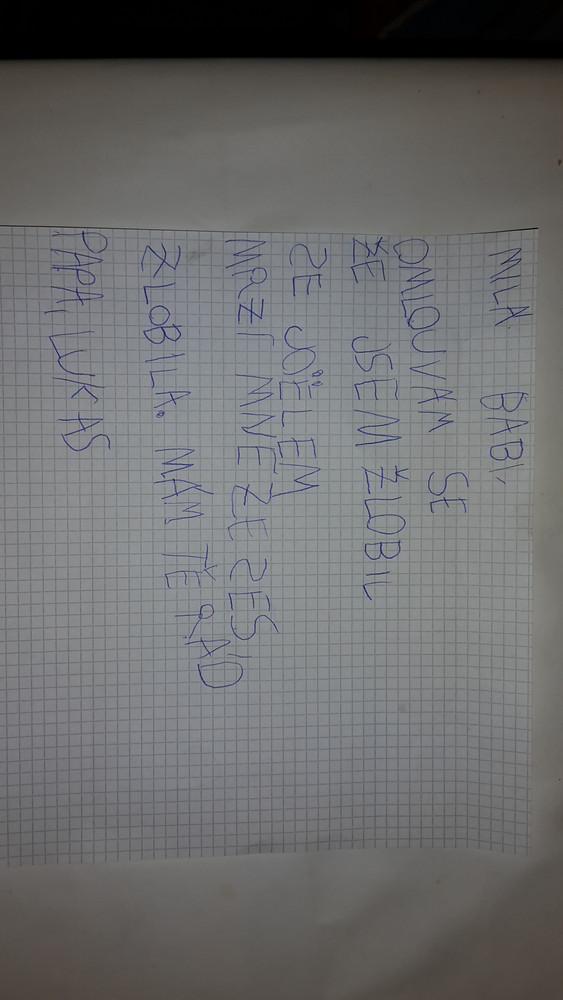 MILÁ BABI,
OMLOUVAM SE
ŽE JSEM ŽLOBIL
SE JOËLEM
MRZI MNE ŽE SES
ZLOBILA. MÁM TĚ RÁD
PAPA, LUKAS